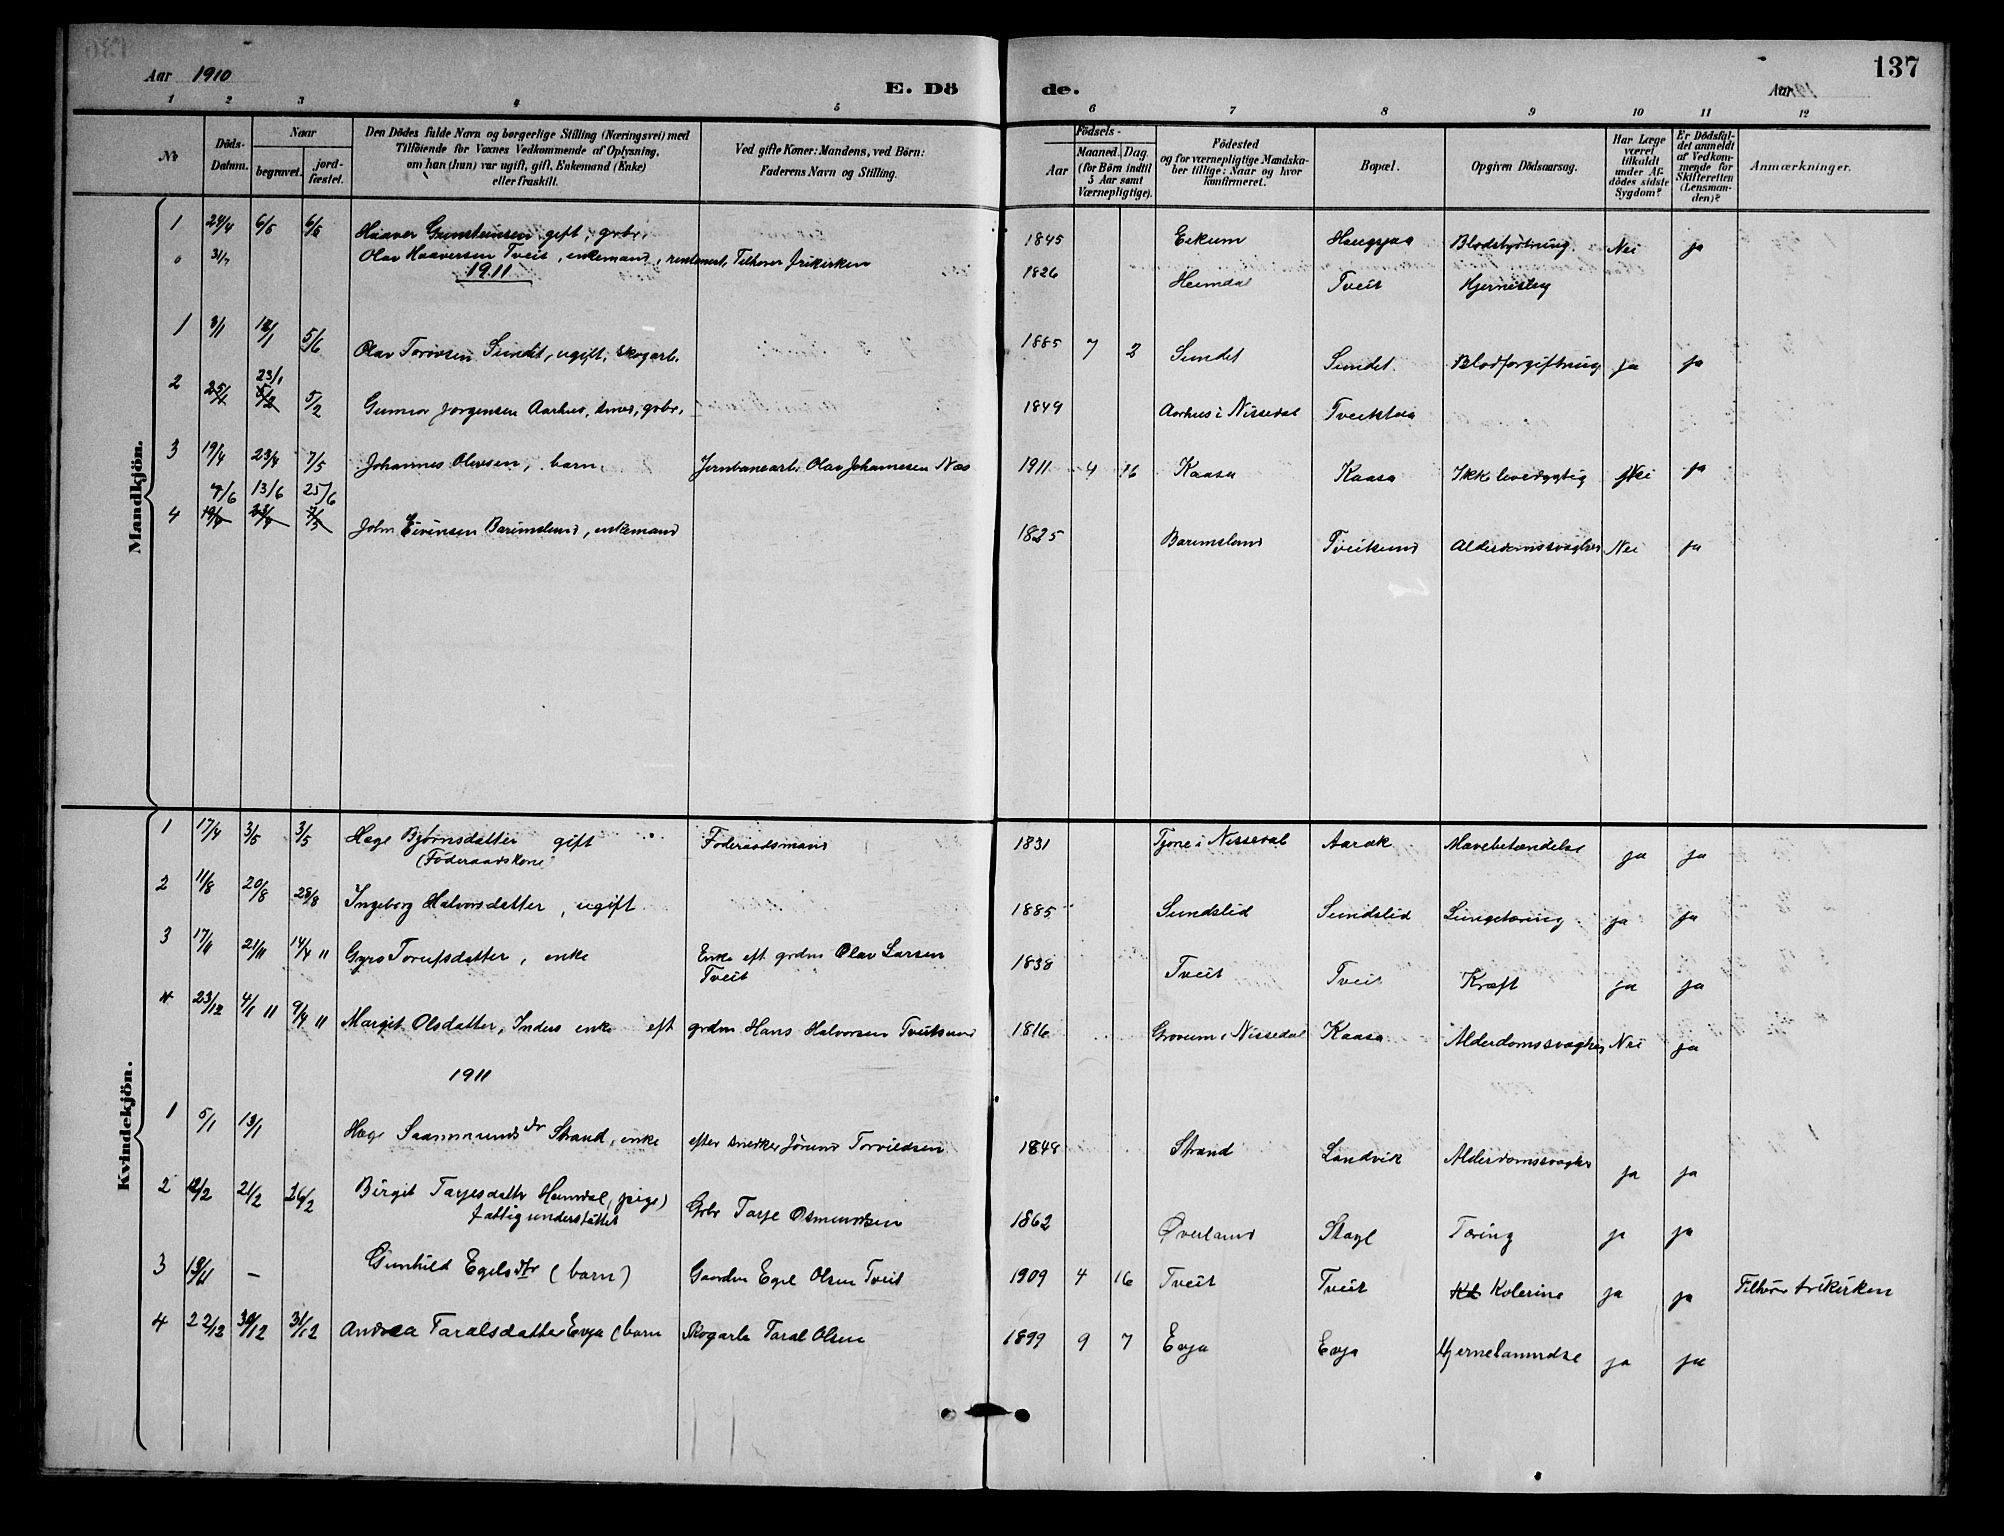 Aar 1910
E. Dö
de.
Aar
137
1 2 3 4 5 6 7 8 9 10 11 12
No
Döds-Datum.
Naar
begravet.
jord-fæstet.
Den Dödes fulde Navn og borgerlige Stilling (Næringsvei) med
Tilföiende for Voxnes Vedkommende af Oplysning,
om han (hun) var ugift, gift, Enkemand (Enke)
eller fraskilt.
Ved gifte Koner: Mandens, ved Börn:
Faderens Navn og Stilling.
Födsels-
Aar
Maaned. Dag
(for Börn indtil
5 Aar samt
Værnepligtige).
Födested
og for værnepligtige Mandska-
ber tillige: Naar og hvor
konfirmeret.
Bopæl.
Opgiven Dödsaarsag.
Har Læge
været
tilkaldt
under Af-
dödes sidste
Sygdom?
Er Dödsfal-
det anmeldt
af Vedkom-
mende for
Skifteretten
(Lensman-
den)?
Anmærkninger.
Mandkjön.
1 24/4 6/5 6/5 Haaver Gunsteinsen gift, grbr. 1845 Eikum Haugsjaa Blodstyrtning. Nei ja
0 31/7 Olav Haaversen Tveit, enkemand, rentenert, Tilhører Frikirken 1826 Heimdal Tveit Hjerneslag
1911
1 3/1 12/1 5/6 Olav Torovsen Sundet, ugift, skogarb. 1885 7 2 Sundet Sundet. Blodforgiftning ja ja
23/1
2 25/1 5/2 5/2 Gunnar Jørgensen Aarhus, smed, grbr. 1849 Aarhus i Nissedal Tveitstaa
3 19/4 23/4 7/5 Johannes Olavsen, barn. Jernbanearb. Olav Johannesen Næs 1911 4 16 Kaasa Kaasa Ikke levedygtig Nei ja
7/6 13/6 25/6
4 19/4 23/4 7/5 John Eivinsen Barimsland, enkemand 1825 Barimsland Tveitsund Alderdomssvaghet Nei ja
Kvindekjön.
1 17/4 3/5 3/5 Hæge Bjørnsdatter gift Föderaadsmand 1831 Tjøne i Nissedal Aarak Mavebetændelse ja ja
(Föderaadskone
2 11/8 20/8 28/8 Ingeborg Halvorsdatter, ugift 1885 Sundslid Sundslid Lungetæring ja ja
3 17/11 21/11 14/4 11 Gyro Torufsdatter, enke Enke eft grdm Olav Larsen
Tveit 1838 Tveit Tveit Kræft ja ja
4 23/12 4/1 11 9/4 11 Margit Olsdatter, Inders enke eft grdm Hans Halvorsen Tveitsund 1816 Grovum i Nissedal Kaasa Alderdomssvaghet Nei ja
1911
1 5/1 13/1 Hæge Saamunds dr Strand, enke efter snedker Jørund Torvildsen 1848 Strand Landvik Alderdomssvaghet ja ja
2 12/2 21/2 26/2 Birgit Tarjesdattr Heimdal, (pige) Gbr Tarje Osmundsen 1862 Øverland Stayl Tæring ja ja
fattigunderstøttet
3 13/11 — Gunhild Egilsdtr (barn) Gaardm Egil Olsen Tveit 1909 4 16 Tveit Tveit Kolerine ja ja Tilhører frikirken
4 22/12 30/12 31/12 Andrea Taralsdatter Evja (barn Skogarb Taral Olsen 1899 9 7 Evja Evja Hjernebetændelse ja ja